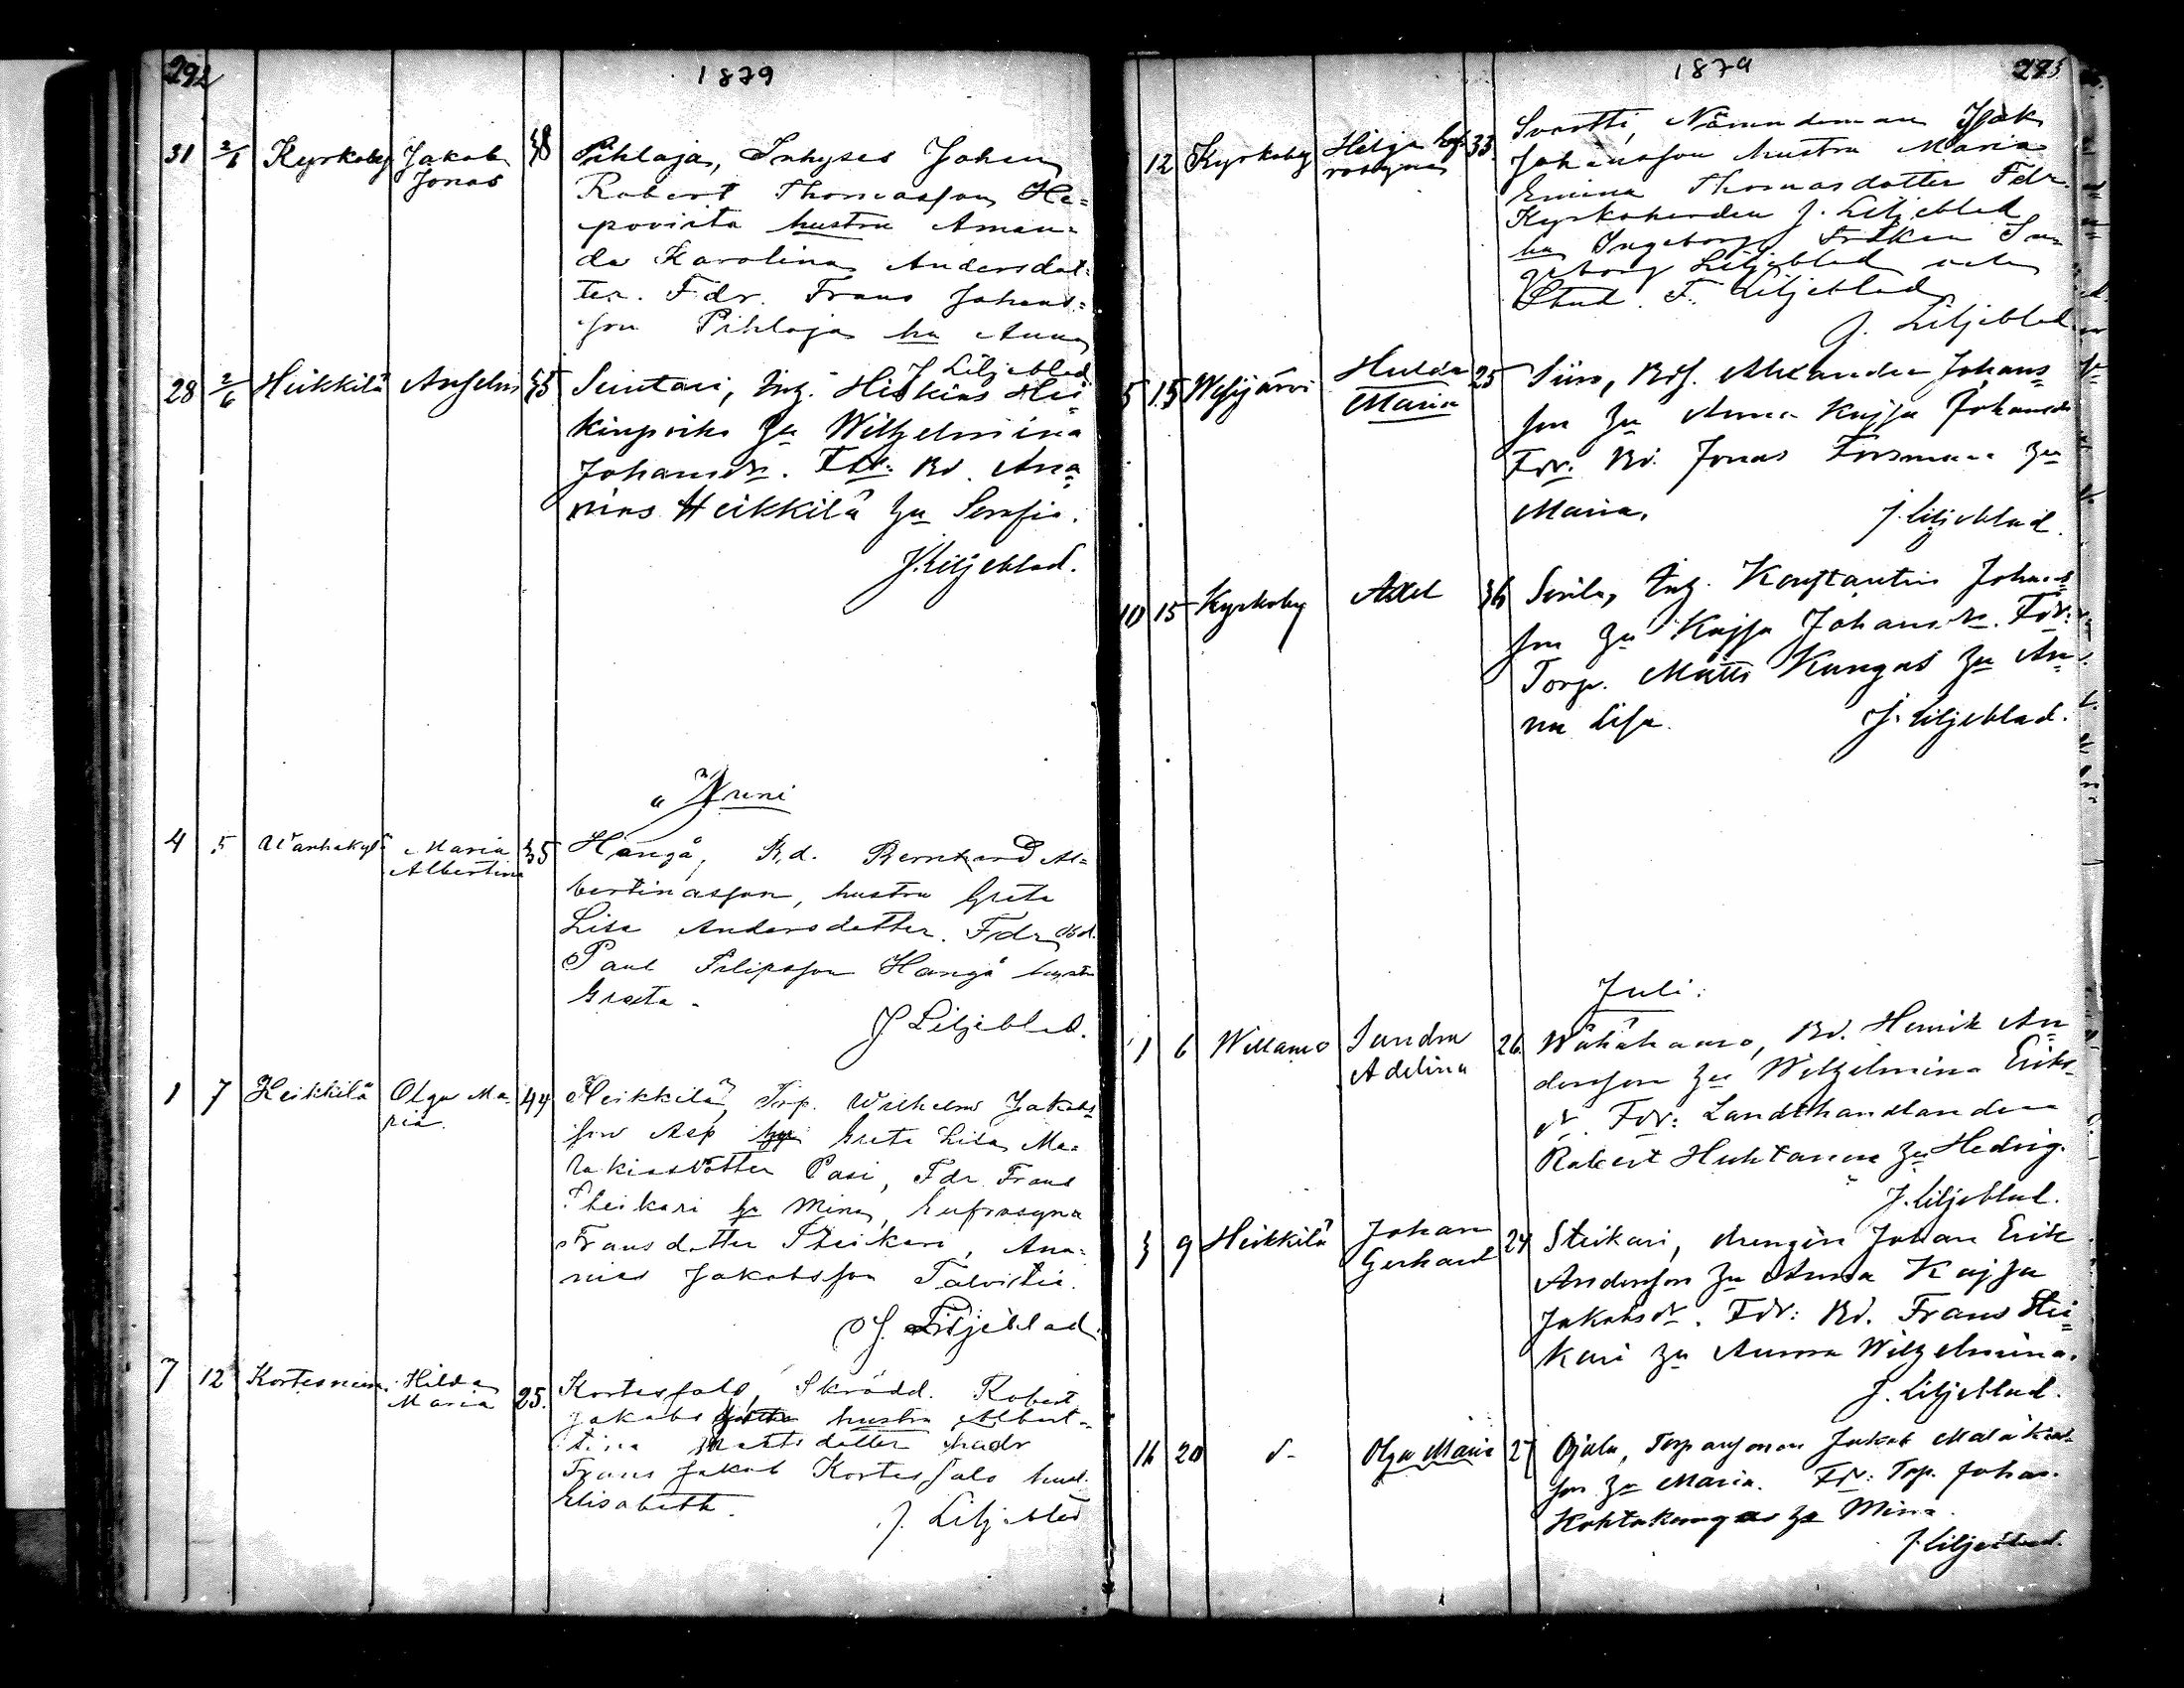 292
1879
31 2/6 Kyrkoby Jakob 38 Pihlaja, Inhyses Johan
Jonas Robert Thomasson He=
povirta hustru Aman=
da Karolina Andersdot=
ter. Fdr. Frans Johans=
son Pihlaja hu Anna
J Liljeblad
28 2/6 Heikkilä Anselm 35 Hiskias Hei=
hu Wilhelmina
Johansdr. Fdr: Bd. Ana=
nias Heikkilä hu Serafia.
J. Liljeblad.
Juni
4 5 Wanhakylä Maria 35 Hangå, Bd. Bernhard Al=
Albertina bertinasson, hustru Greta
Lisa Andersdotter. Fdr Bd.
Paul Filipsson Hangå hustru
Greta.
J Liljeblad.
1 7 Heikkilä Olga Ma= 44 Heikkilä, Torp. Wilhelm Jakobs=
ria. son Asp hu Greta Lisa Ma=
lakiasdotter Pasi, Fdr. Frans
hu Mina, Eufrosyna
Fransdotter Ana=
nias Jakobsson Talvitie.
J. Liljeblad.
7 12 Kortesniem. Hilda 25. Kortessalo, Skrädd. Robert
Maria Jakobs hustru Albert=
tina Mattsdotter
Frans Jakob Kortessalo hust.
Elisabeth.
J. Liljeblad
1879
293
12 Kyrkoby Hilja Euf= 33. Svartti, Nämndeman Isak
rosyna Johansson hustru Maria
Emina Thomasdotter Fdr.
Kyrkoherden J. Liljeblad
hu Ingeborg, Fröken In=
geborg Liljeblad och
Stud. F. Liljeblad
J. Liljeblad
5 15 Wesijärvi Hulda 25 Siiro, Bds. Alexander Johans=
Maria son hu Anna Kajsa Johansdr
Fdr: Bd. Jonas Forsman hu
Maria.
J. Liljeblad.
10 15 Kyrkoby Axel 36 Konstantin Johans=
son hu Kajsa Johansdr. Fdr:
Torp. Matts Kangas hu An=
na Lisa.
J. Liljeblad.
Juli:
1 6 Willamo Sandra 26. Wähähaaro, Bd. Henrik An=
Adelina dersson hu Wilhelmina Eriks=
dr. Fdr: Landthandlanden
Robert Huhtanen hu Hedvig.
J. Liljeblad.
3 9 Heikkilä Johan 24 Steikari, drengen Johan Erik
Gerhard Andersson hu Anna Kajsa
Jakobsdr. Fdr: Bd. Frans Stei=
kari hu Anna Wilhelmina.
J. Liljeblad.
16 20 d- Olga Maria 27 Ojala, Jakob Malakias=
son hu Maria. Fdr: Torp. Johan
Kohtakangas hu Mina.
J. Liljeblad.